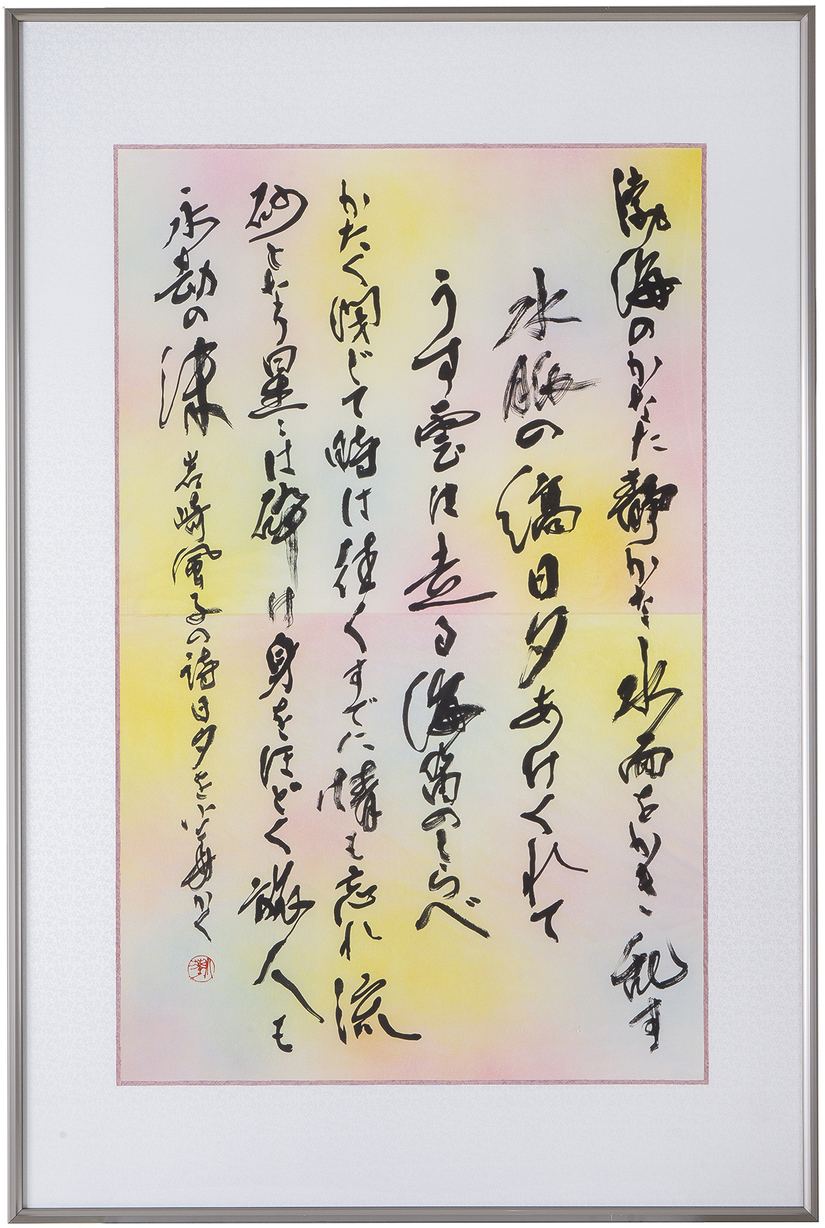 海のかなた静かな水面をかき乱す
水脈の縞日夕あけくれて
うす雲は走る海笛のしらべ
かたく閉じて時は往くすでに情も忘れ流
砂となり星々は砕け身をほどく旅人も
永劫の 岩崎風子の詩日夕を かく